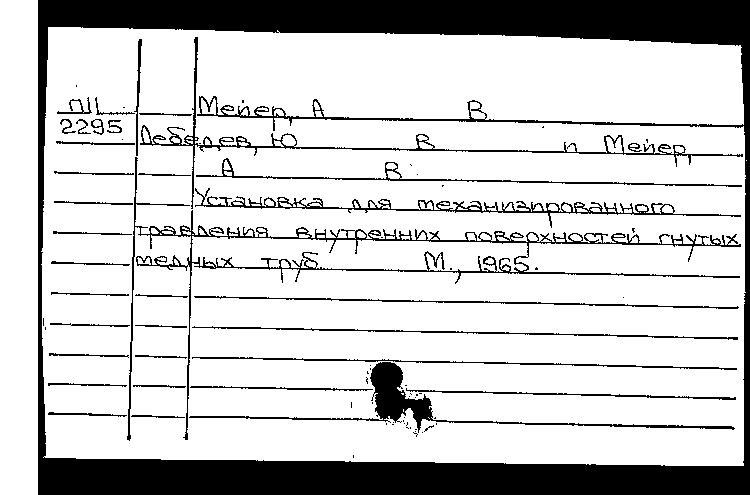 П11 Мейер, А В
2295 Лебедев, Ю В и Мейер,
А В
Установка для механизированного
травления внутренних поверхностей гнутых
медных труб М., 1965.